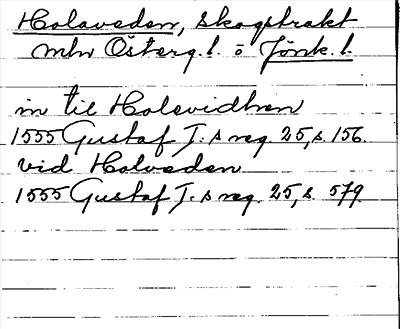 Holaveden, skogstrakt
mln Österg.l. o Jönk.l.
in til Holevidhen
1555 Gustaf I:s reg. 25, s. 156.
vid Holveden
1555 Gustaf I:s reg. 25, s. 579.